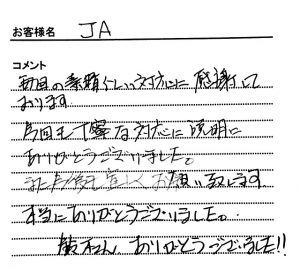 お客様名 JA
コメント
毎回の素晴らしい対応に感謝して
おります
今回も丁寧な対応に説明に
ありがとうございました。
また今後も宜しくお願い致します
本当にありがとうございました。
さん ありがとうございました!!